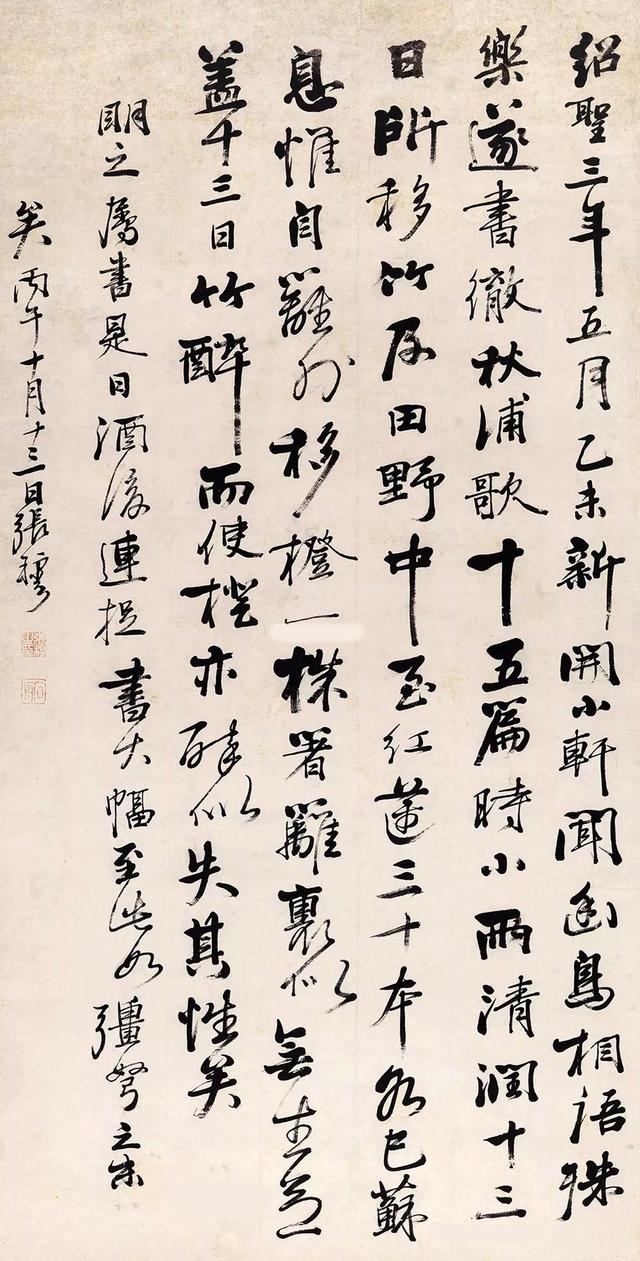 紹聖三年五月乙未新開小軒聞幽鳥相語殊
樂遂書徹秋浦歌十五篇時小雨清潤十三
日所移竹及田野中至紅蓮三十本各已蘇
息惟自籬外移橙一株著籬裏似無生意
蓋十三日竹醉而使橙亦醉似失其性矣
明之屬書是日酒後連捉書大幅至此如彊弩之末
矣丙午十月十三日張穆